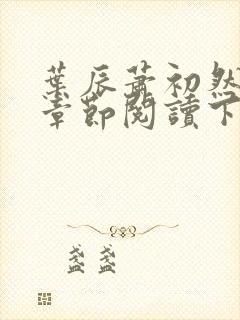 葉辰蕭初然
章節閱讀下
盞盞